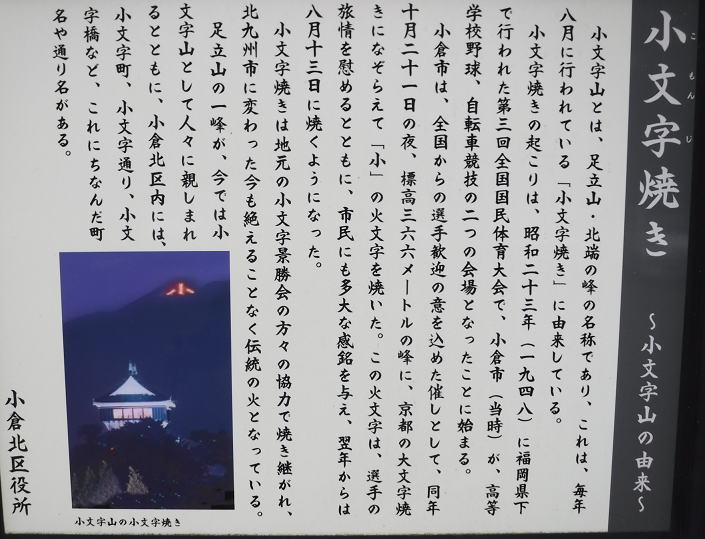 小文字焼き
こもんじ
～小文字山の由来～
小文字山とは、足立山・北端の峰の名称であり、これは、毎年
八月に行われている「小文字焼き」に由来している。
小文字焼きの起こりは、昭和二十三年（一九四八）に福岡県下
で行われた第三回全国国民体育大会で、小倉市（当時）が、高等
学校野球、自転車競技の二つの会場となったことに始まる。
小倉市は、全国からの選手歓迎の意を込めた催しとして、同年
十月二十一日の夜、標高三六六メートルの峰に、京都の大文字焼
きになぞらえて「小」の火文字を焼いた。この火文字は、選手の
旅情を慰めるとともに、市民にも多大な感銘を与え、翌年からは
八月十三日に焼くようになった。
小文字焼きは地元の小文字景勝会の方々の協力で焼き継がれ、
北九州市に変わった今も絶えることなく伝統の火となっている。
足立山の一峰が、今では小
文字山として人々に親しまれ
るとともに、小倉北区内には、
小文字町、小文字通り、小文
字橋など、これにちなんだ町
名や通り名がある。
小文字山の小文字焼き
小倉北区役所